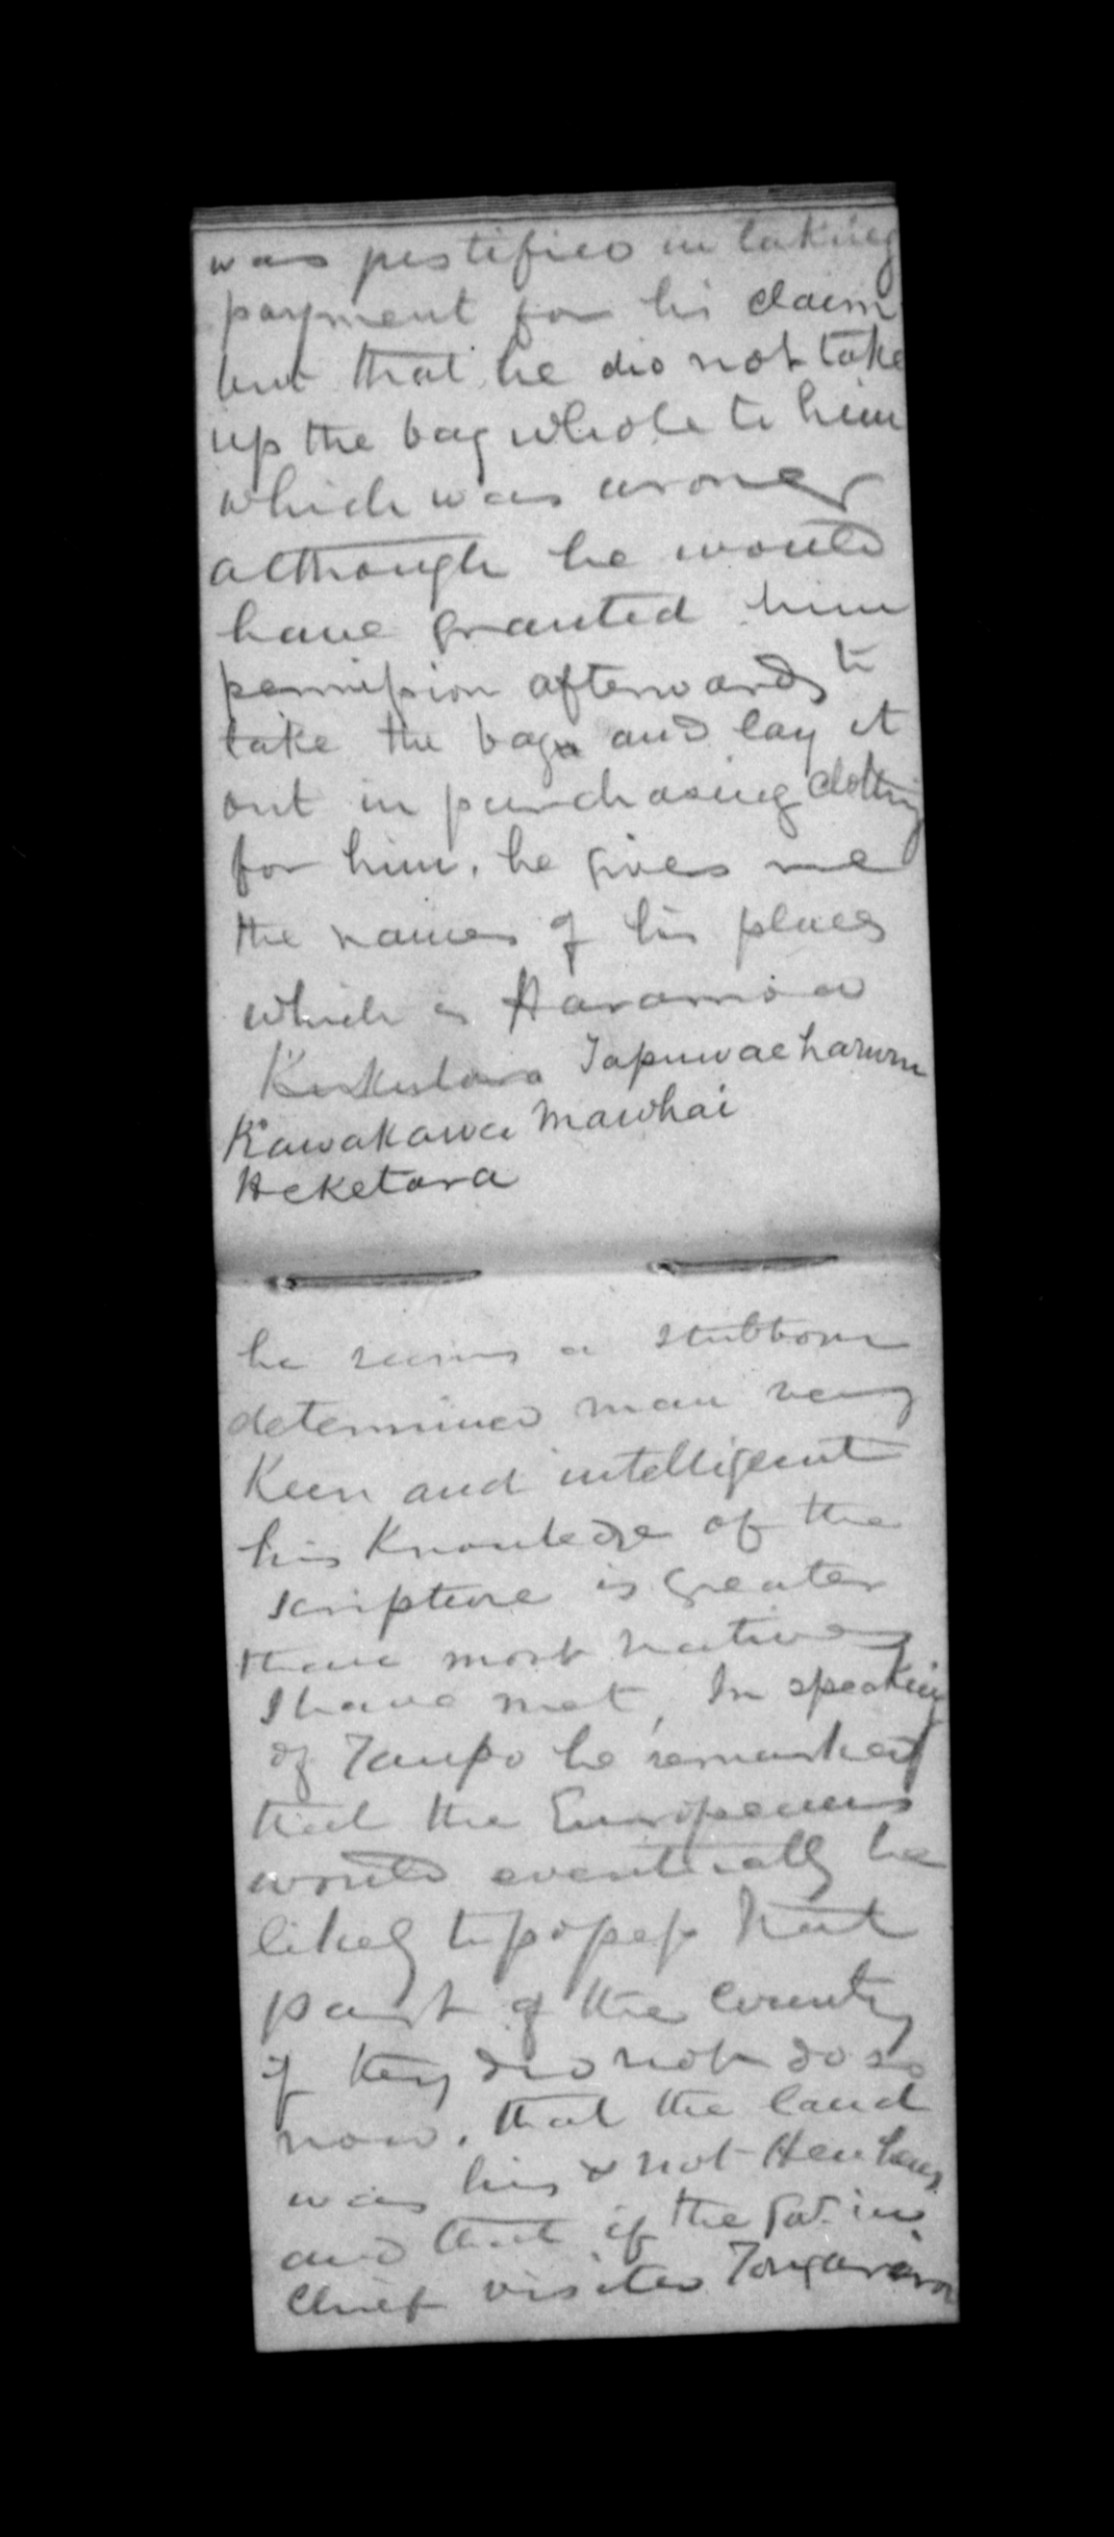 was justified in taking
payment for his claim
but that he did not take
up the bag whole to him
which was wrong
although he would
have granted him
permission afterwards to
take the bag and lay it
out in purchasing clothing
for him. he gives me
the names of his places
which is Haramoa
Tapuwaeharuru
Kawakawa Mawhai
Heketara
he seems a stubborn
determined man very
Keen and intelligent
his Knowledge of the
scripture is greater
than most natives
I have met, In speaking
of Taupo he remarked
that the Europeans
would eventually be
likely to possess that
part of the Country
if they did not do so
now. that the land
was his & not Heu heus
and that if the Gov. in
Chief visited Tongariro